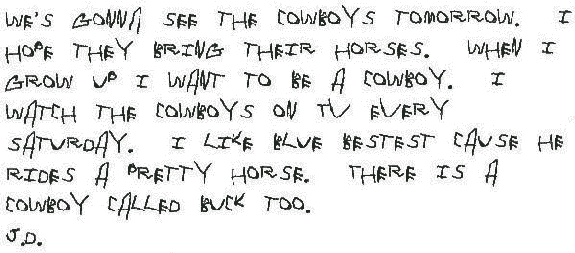 WE'S GONNA SEE THE COWBOYS TOMORROW. I
HOPE THEY BRING THEIR HORSES. WHEN I
GROW UP I WANT TO BE A COWBOY. I
WATCH THE COWBOYS ON TV EVERY
SATURDAY. I LIKE BLUE BESTEST CAUSE HE
RIDES A PRETTY HORSE. THERE IS A
COWBOY CALLED BUCK TOO.
J.D.